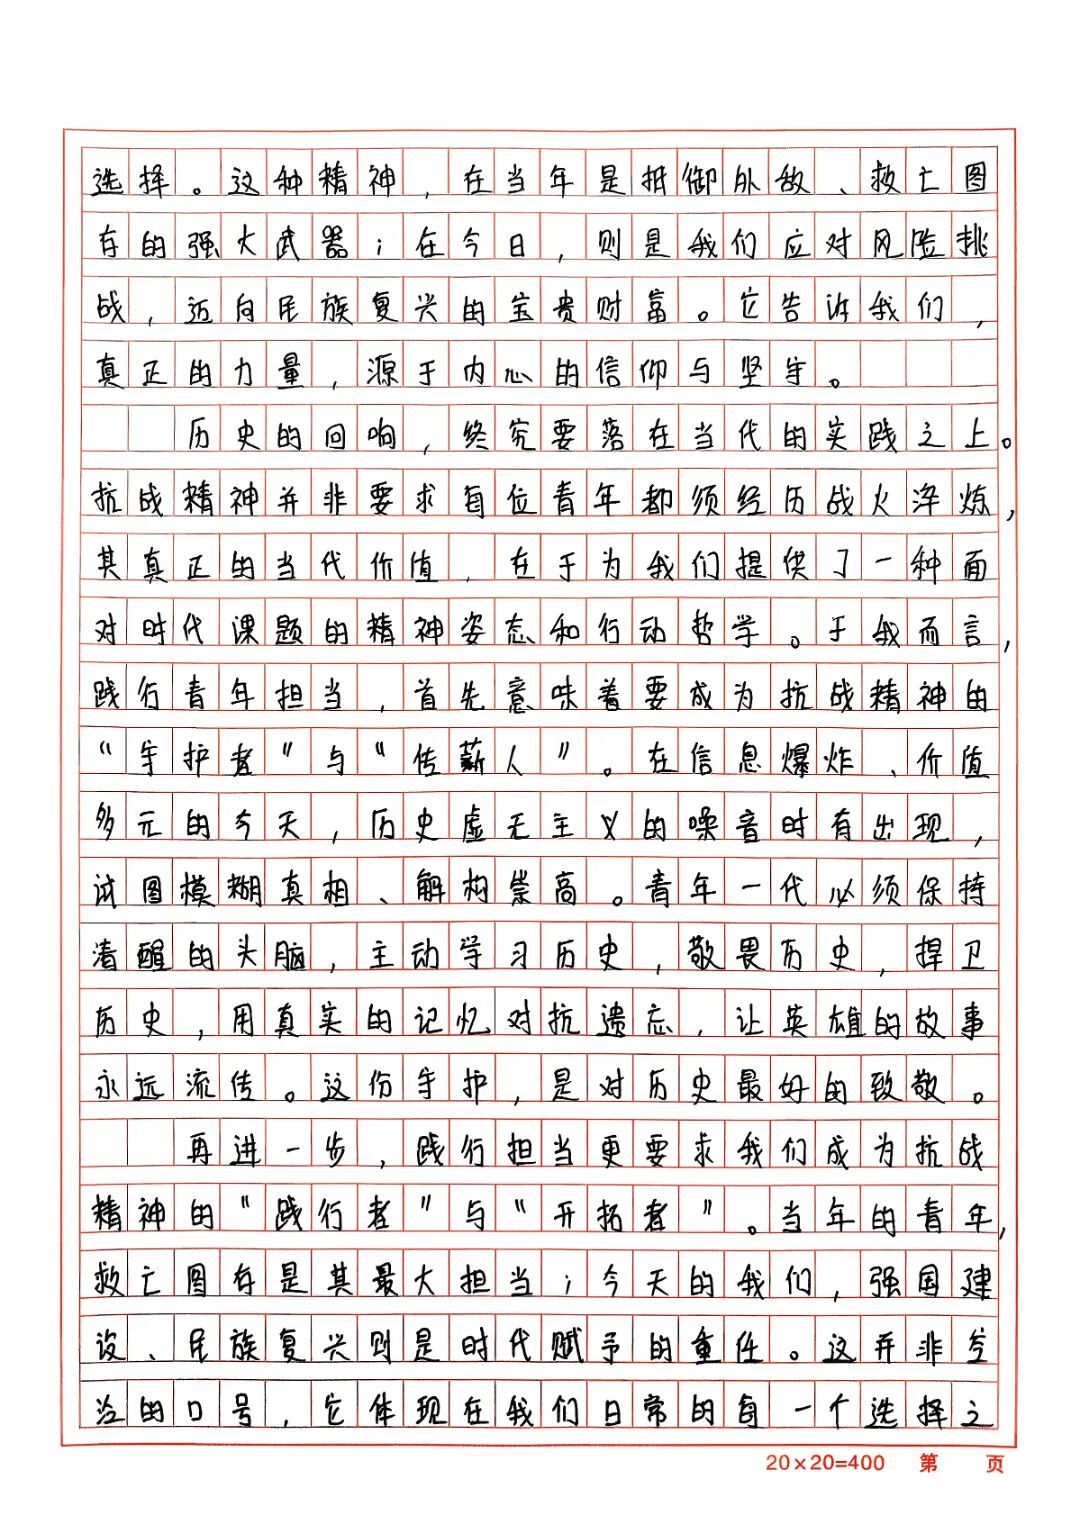 选择。这种精神，在当年是抵御外敌、救亡图
存的强大武器；在今日，则是我们应对风险挑
战，迈向民族复兴的宝贵财富。它告诉我们，
真正的力量，源于内心的信仰与坚守。
历史的回响，终究要落在当代的实践之上。
抗战精神并非要求每位青年都须经历战火淬炼，
其真正的当代价值，在于为我们提供了一种面
对时代课题的精神姿态和行动哲学。于我而言，
践行青年担当，首先意味着要成为抗战精神的
“守护者”与“传薪人”。在信息爆炸、价值
多元的今天，历史虚无主义的噪音时有出现，
试图模糊真相、解构崇高。青年一代必须保持
清醒的头脑，主动学习历史，敬畏历史，捍卫
历史，用真实的记忆对抗遗忘，让英雄的故事
永远流传。这份守护，是对历史最好的致敬。
再进一步，践行担当更要求我们成为抗战
精神的“践行者”与“开拓者”。当年的青年，
救亡图存是其最大担当；今天的我们，强国建
设、民族复兴则是时代赋予的重任。这并非空
泛的口号，它体现在我们日常的每一个选择之
20×20=400 第 页